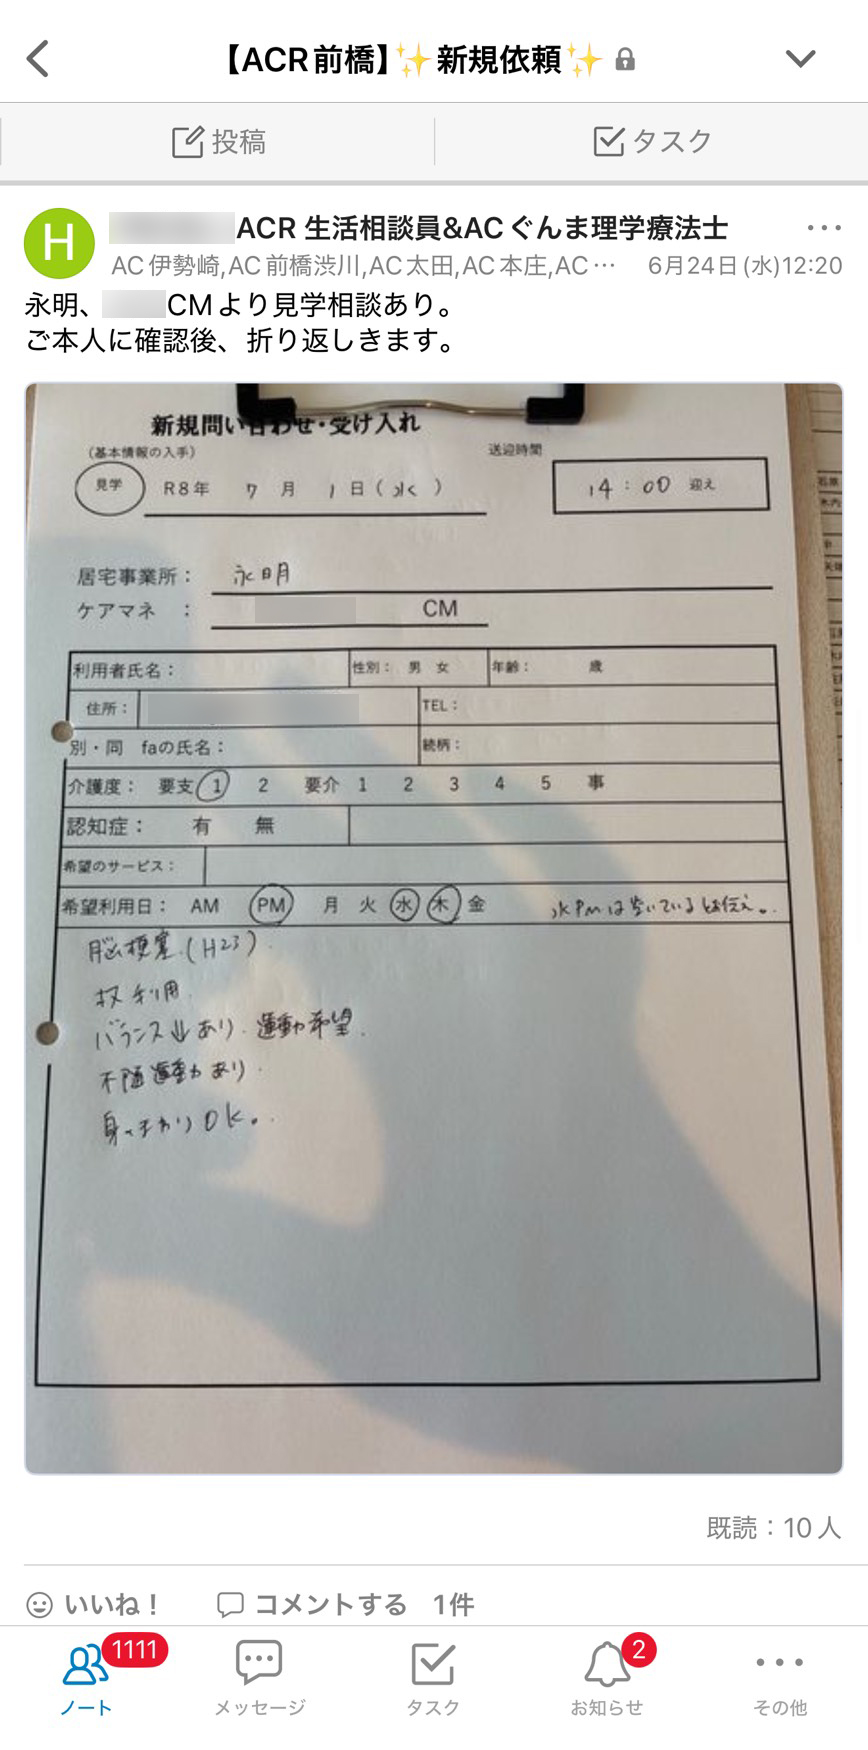 【ACR前橋】✨新規依頼✨
投稿 タスク
H
ACR 生活相談員&ACぐんま理学療法士
AC伊勢崎,AC前橋渋川,AC太田,AC本庄,AC… 6月24日(水)12:20
永明、 CMより見学相談あり。
ご本人に確認後、折り返しきます。
新規問い合わせ・受け入れ
(基本情報の入手) 送迎時間
見学 R8年 7月 1日(水) 14:00 迎え
居宅事業所: 永明
ケアマネ : CM
利用者氏名: 性別: 男 女 年齢: 歳
住所: TEL:
別・同 faの氏名: 続柄:
介護度: 要支 1 2 要介 1 2 3 4 5 事
認知症: 有 無
希望のサービス:
希望利用日: AM PM 月 火 水 木 金 水PMは空いているとお伝え。
脳梗塞(H23)
杖利用
バランス↓あり. 運動希望.
不随運動あり.
身のまわりOK.
既読:10人
いいね! コメントする 1件
1111 2
ノート メッセージ タスク お知らせ その他